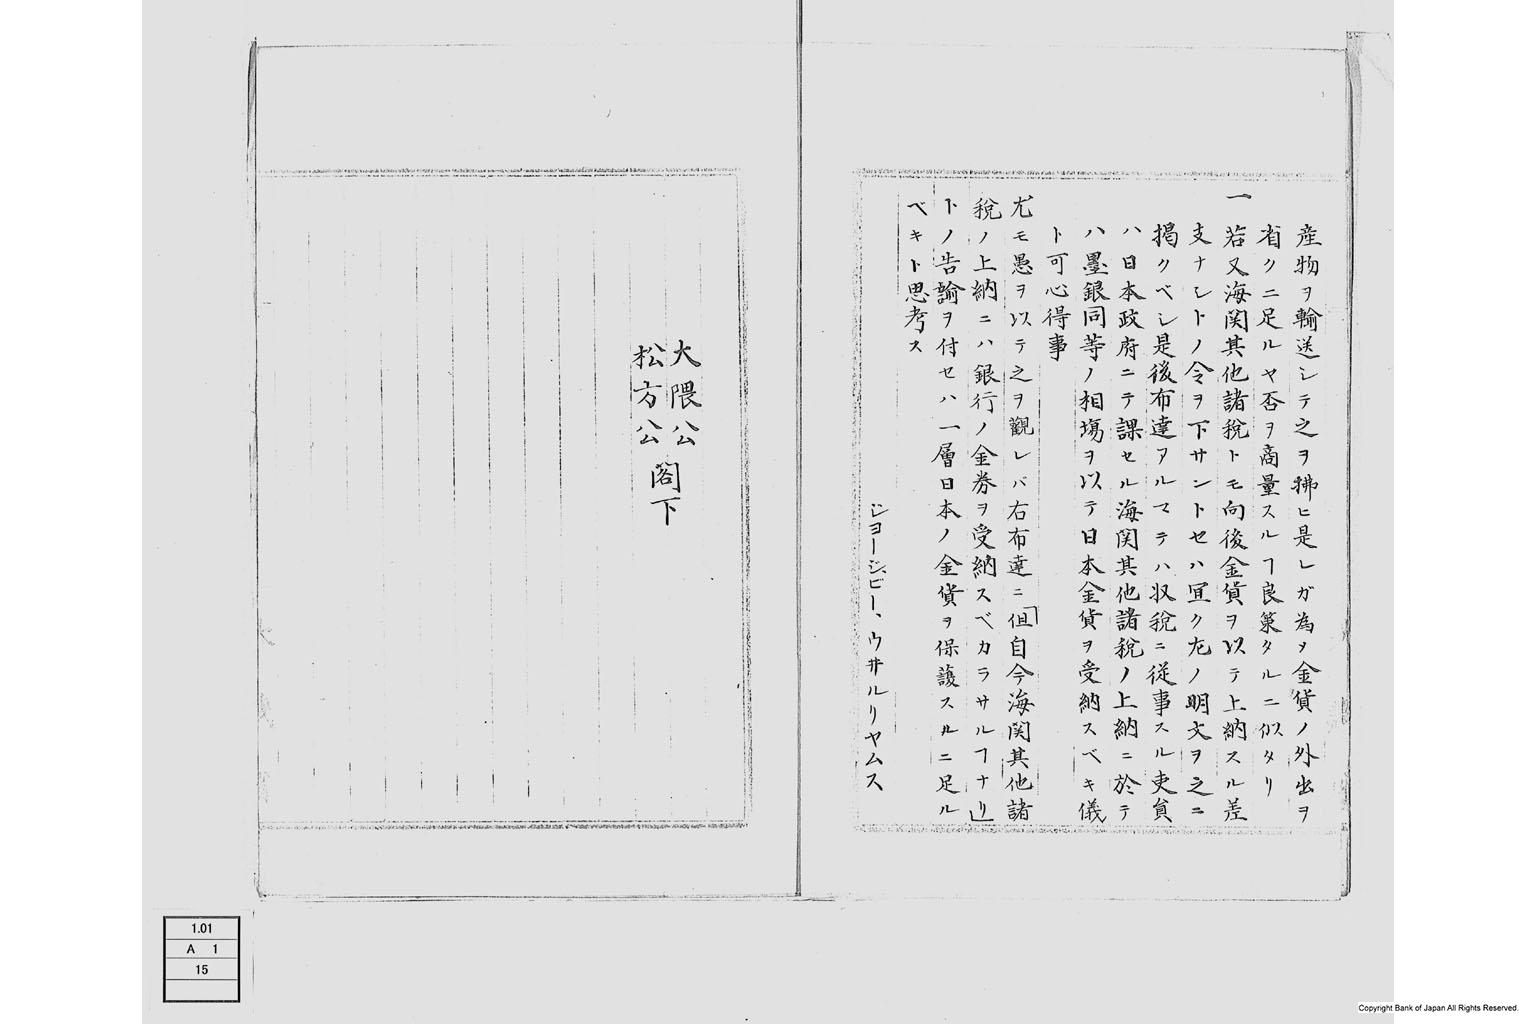 産物ヲ輸送シテ之ヲ拂ヒ是レガ為メ金貨ノ外出ヲ
省クニ足ルヤ否ヲ商量スルヿ良策タルニ似タリ
一 若又海関其他諸税トモ向後金貨ヲ以テ上納スル差
支ナシトノ令ヲ下サントセハ宜ク左ノ明文ヲ之ニ
掲クベシ是後布達アルマテハ収税ニ従事スル吏員
ハ日本政府ニテ課セル海関其他諸税ノ上納ニ於テ
ハ墨銀同等ノ相塲ヲ以テ日本金貨ヲ受納スベキ儀
ト可心得事
尤モ愚ヲ以テ之ヲ觀レバ右布達ニ「但自今海関其他諸
税ノ上納ニハ銀行ノ金券ヲ受納スベカラサルヿナリ」
トノ告諭ヲ付セハ一層日本ノ金貨ヲ保護スルニ足ル
ベキト思考ス
ジヨージ、ビー、ウヰルリヤムス
大隈公
松方公
閣下
1.01
A 1
15
Copyright Bank of Japan All Rights Reserved.